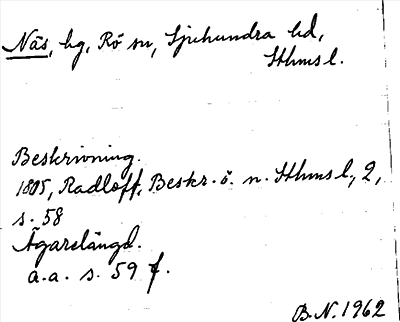 Näs, hg, Rö sn, Sjuhundra hd,
Sthms l.
Beskrivning.
1805, Radloff, Beskr. ö. n. Sthms l., 2,
s. 58
Ägarelängd.
a.a. s. 59 f.
B.N. 1962